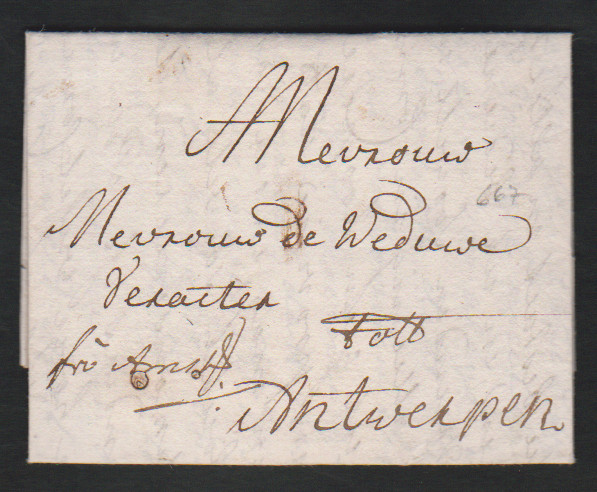 Mevrouw
667
Mevrouw de Weduwe
Veracter
tott
frã Amst
Antwerpen